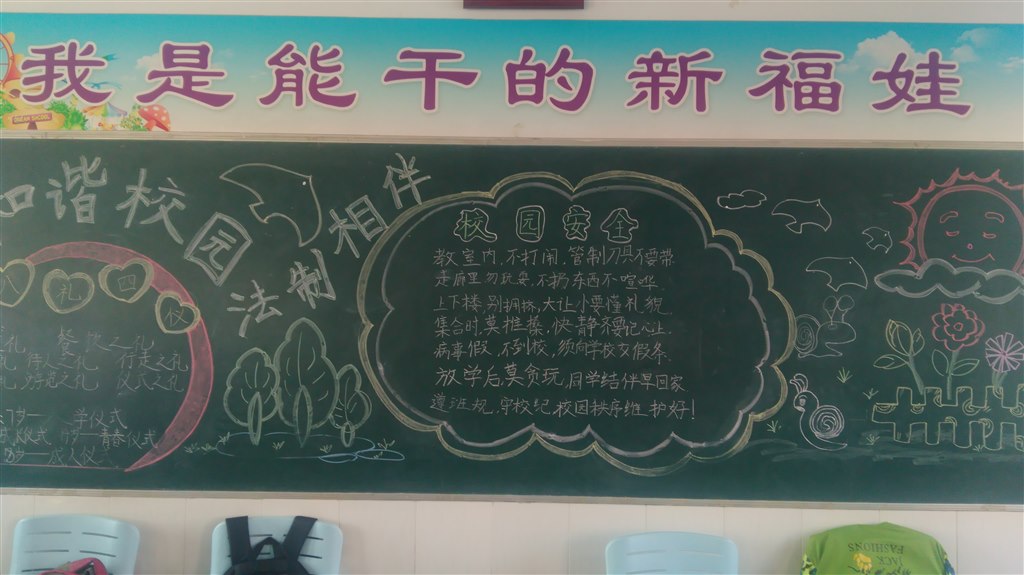 我是能干的新福娃
DREAM SCHOOL
和谐校园
法制相伴
八礼四仪
礼 餐饮之礼
待人之礼 行走之礼
礼 游览之礼 仪式之礼
7岁一 学仪式
仪式 青春仪式
岁一成人仪
校园安全
教室内,不打闹,管制刀具不要带
走廊里勿玩耍,不扔东西不喧哗.
上下楼,别拥挤,大让小要懂礼貌
集合时,莫推搡,快静齐要记心上.
病事假,不到校,须向学校交假条.
放学后,莫贪玩,同学结伴早回家
遵班规,守校纪,校园秩序维护好!
JACK
FASHIONS